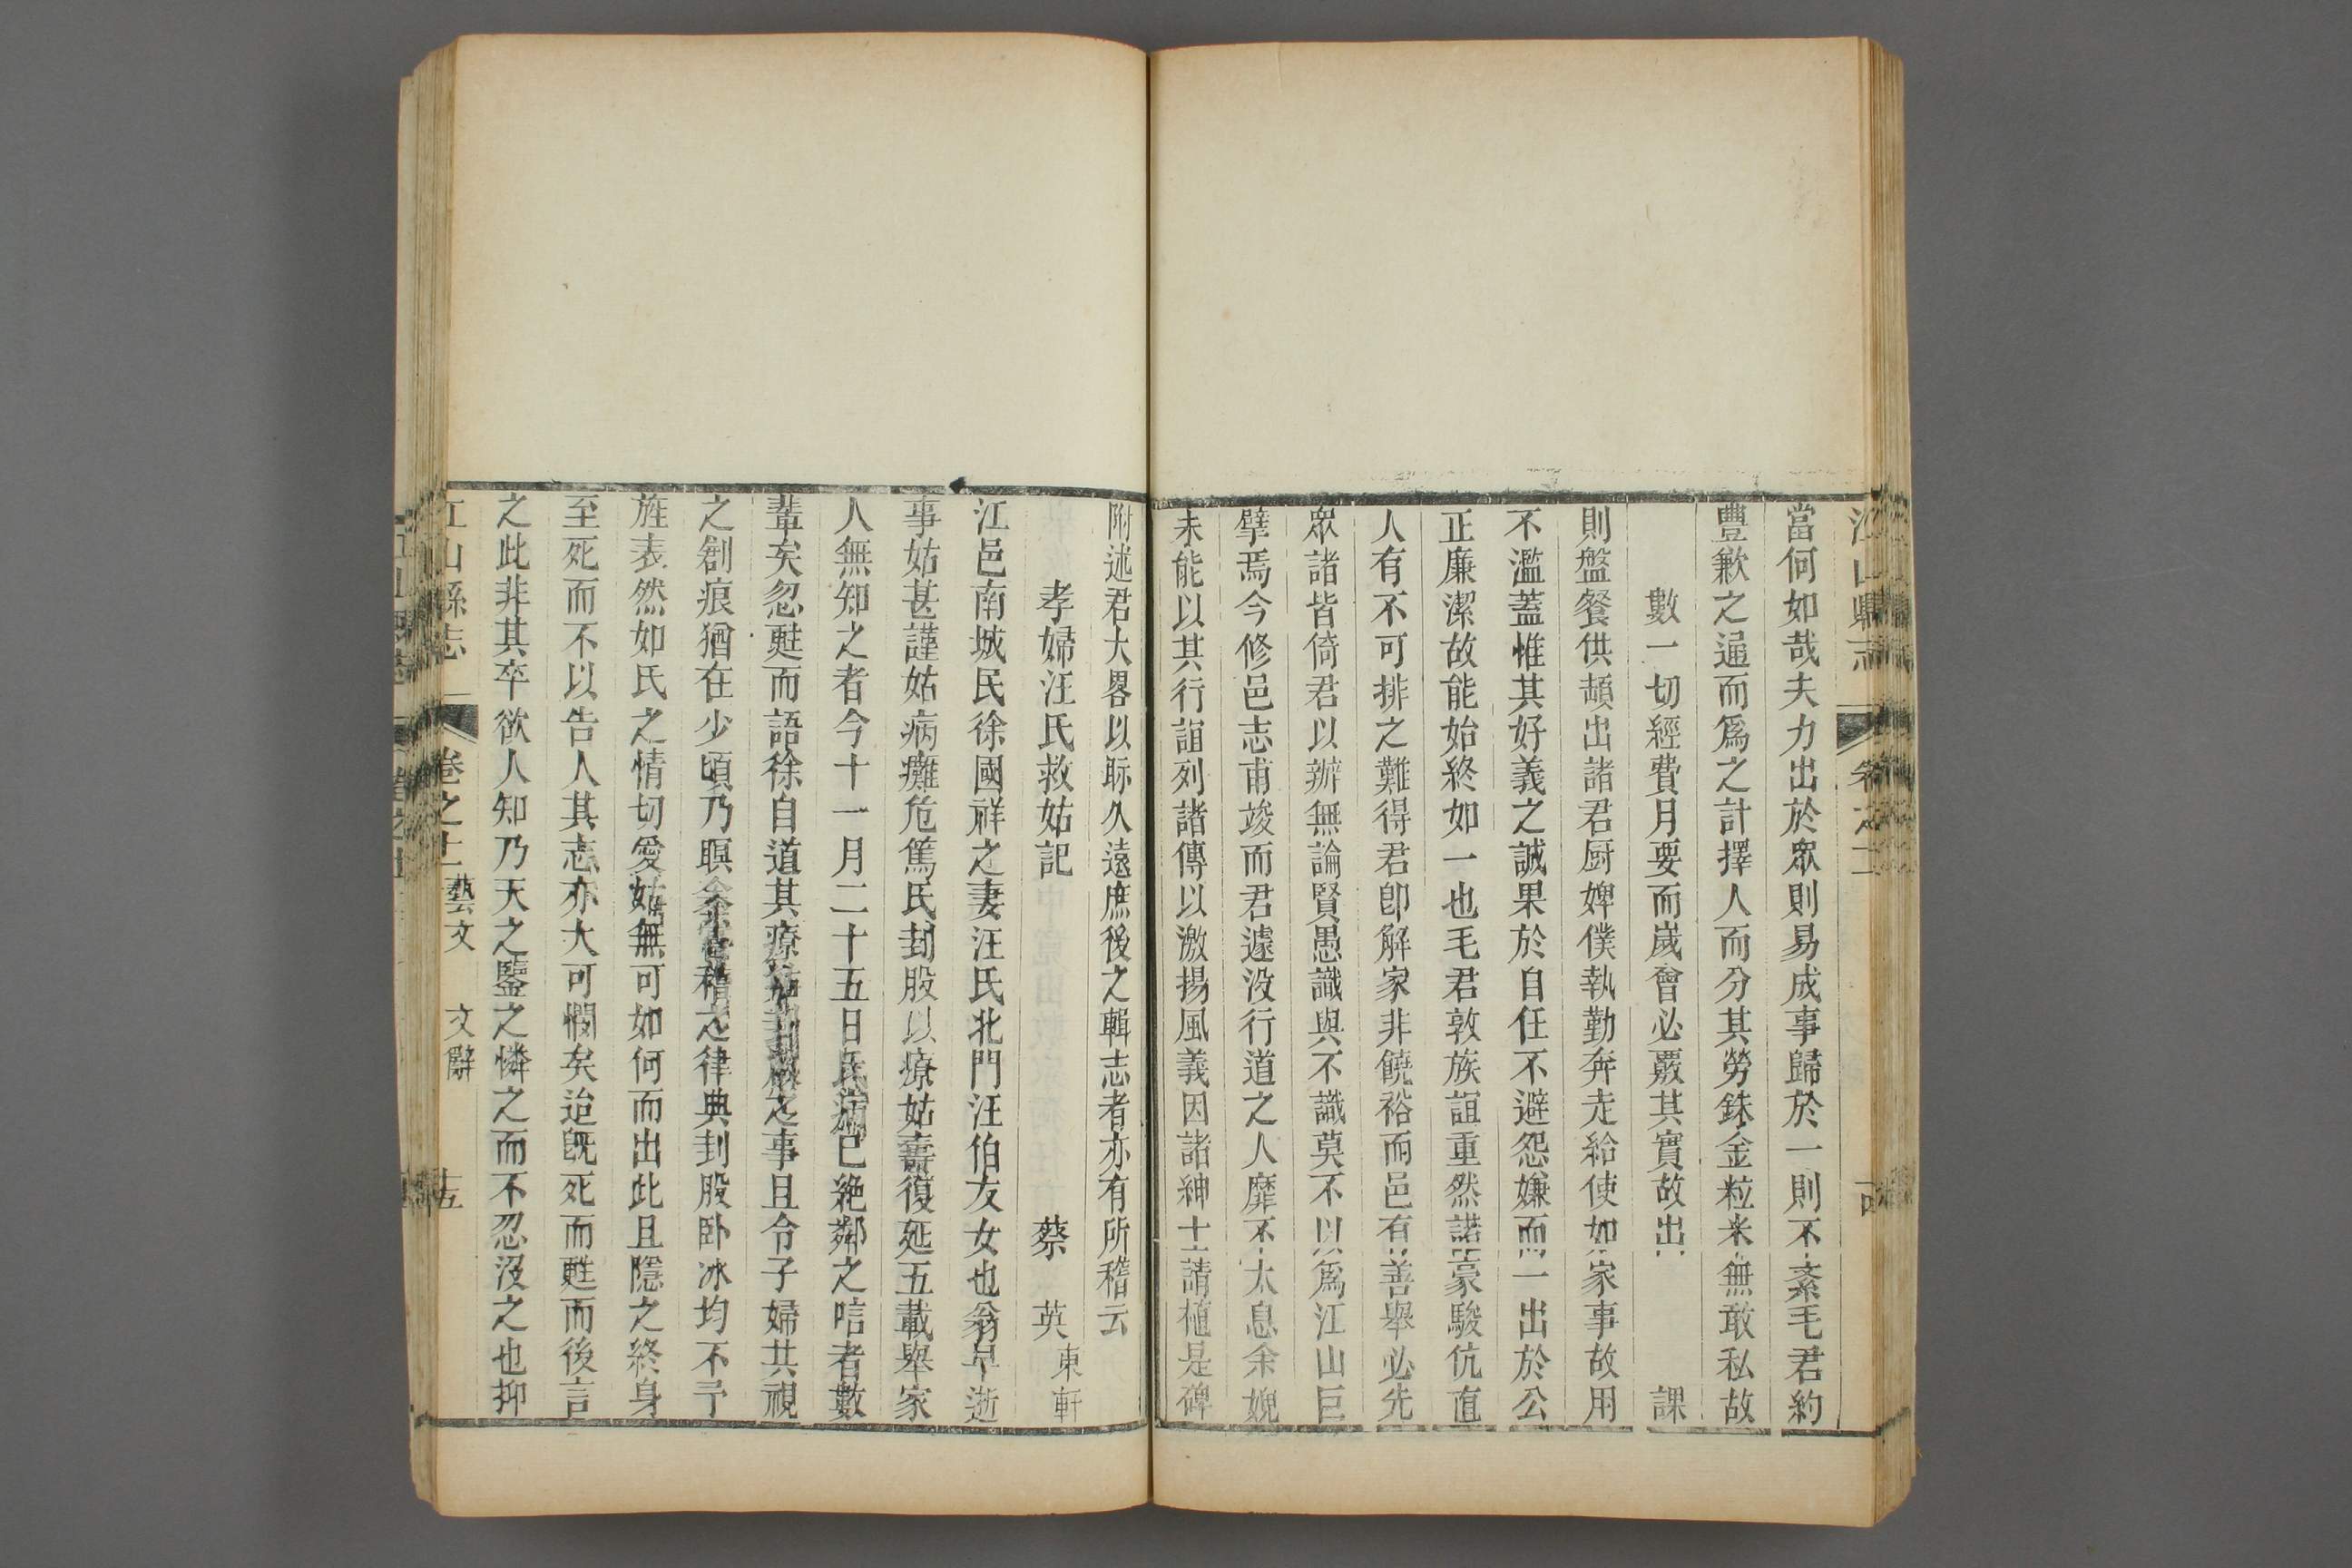 當何如哉夫力出於眾則易成事歸於一則不紊毛君約
豐歉之通而爲之計擇人而分其勞銖金粒米無敢私故
數一切經費月要而歲會必覈其實故出 課
則盤餐供頓出諸君厨婢僕執勤奔走給使如家事故用
不濫蓋惟其好義之誠果於自任不避怨嫌而一出於公
正廉潔故能始終如一也毛君敦族誼重然諾豪駿伉直
人有不可排之難得君卽解家非饒裕而邑有善舉必先
眾諸皆倚君以辦無論賢愚識與不識莫不以爲江山巨
擘焉今修邑志甫竣而君遽没行道之人靡不太息余媿
未能以其行誼列諸傳以激揚風義因諸紳士請植是碑
附述君大畧以昹久遠庶後之輯志者亦有所稽云
孝婦汪氏救姑記 蔡英東軒
江邑南城民徐國祥之妻汪氏北門汪伯友女也翁早逝
事姑甚謹姑病癱危篤民刲股以療姑壽復延五載舉家
人無知之者今十一月二十五日氏病已絶鄰之唁者數
輩矣忽甦而語徐自道其療姑刲股之事且令子婦共視
之創痕猶在少頃乃瞑余嘗稽之律典刲股卧冰均不予
旌表然如氏之情切愛姑無可如何而出此且隱之終身
至死而不以告人其志亦大可憫矣迨旣死而甦而後言
之此非其卒欲人知乃天之鑒之憐之而不忍沒之也抑
江山縣志 卷之十一藝文 文辭 十五